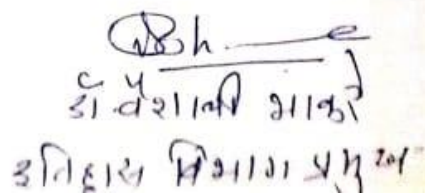 डॉ वैशाली भाकरे
इतिहास विभाग प्रमुख